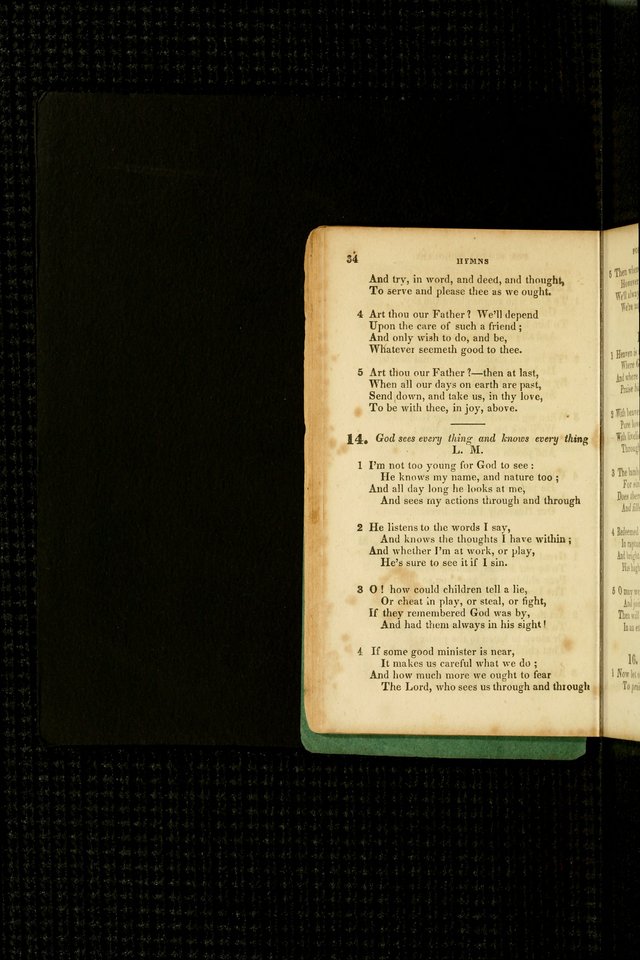 34
HYMNS
And try, in word, and deed, and thought,
To serve and please thee as we ought.
4 Art thou our Father? We'll depend
Upon the care of such a friend;
And only wish to do, and be,
Whatever seemeth good to thee.
5 Art thou our Father?—then at last,
When all our days on earth are past,
Send down, and take us, in thy love,
To be with thee, in joy, above.
14. God sees every thing and knows every thing
L. M.
1 I'm not too young for God to see:
He knows my name, and nature too;
And all day long he looks at me,
And sees my actions through and through
2 He listens to the words I say,
And knows the thoughts I have within;
And whether I'm at work, or play,
He's sure to see it if I sin.
3 O! how could children tell a lie,
Or cheat in play, or steal, or fight,
If they remembered God was by,
And had them always in his sight!
4 If some good minister is near,
It makes us careful what we do;
And how much more we ought to fear
The Lord, who sees us through and through
5 Then
We'll
1 Heaven is
Where
And where
Praise
2 With
Pure
With
Through
3 The
For
Does
And
4 Redeemed
In
And bright
His high
5 O may we
And
Then will
In
16.
1 Now let
To